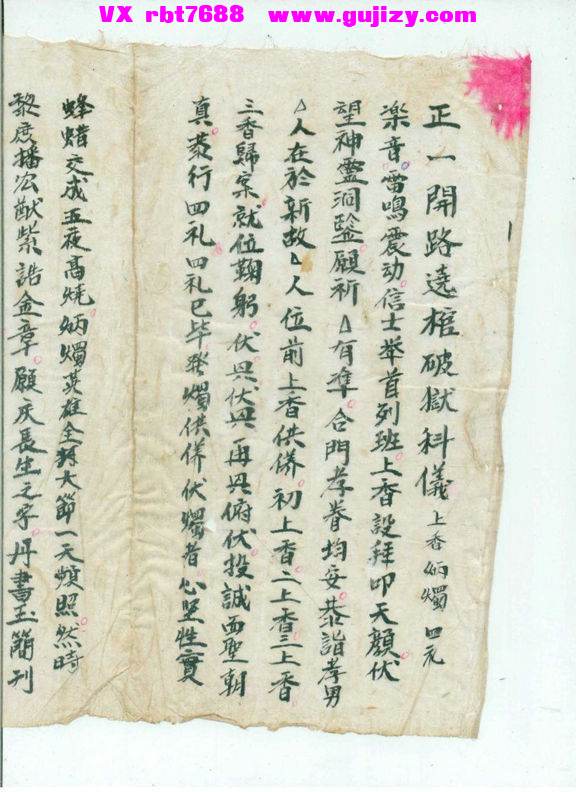 VX rbt7688 www.gujizy.com
正一開路遶棺破獄科儀 上香炳燭 四礼
楽音雷鳴震动信士举首列班上香設拜叩天顔伏
望神靈洞鑒願祈△有準合門孝眷均妥恭詣孝男
△人在於新故△人位前上香供俻初上香二上香三上香
三香歸案就位鞠躬伏興伏興再興俯伏投誠面聖朝
真恭行四礼四礼已毕發燭供俻伏燭者心坚性實
蜂蜡交成五夜髙燒炳燭英雄全大節一天煩照然时
黎庶播宏猷紫誥金章願庆長生之字丹書玉簡刊